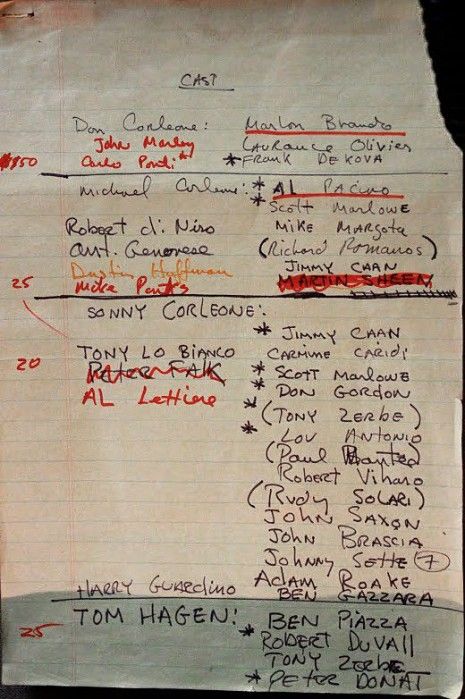 CAST
Don Corleone: Marlon Brando
John Marley Laurance Olivier
$150 Carlo Ponti* * FRANK DE KOVA
Michael Corleone: * AL PACINO
* Scott Marlowe
Robert di Niro MIKE MARGOTA
Ant. Genovese (Richard Romanos)
Dustin Hoffman JIMMY CAAN
25 MARTIN SHEEN
SONNY CORLEONE:
* JIMMY CAAN
TONY LO BIANCO CARMINE CARIDI
20 PETER FALK * SCOTT MARLOWE
AL Lettiere * DON GORDON
(TONY ZERBE)
* LOU ANTONIO
(Paul
Robert Viharo
(Rudy SOLARI)
JOHN SAXON
JOHN BRASCIA
Johnny Sette 7
Adam ROAKE
HARRY GUARDINO BEN GAZZARA
TOM HAGEN: BEN PIAZZA
25 * ROBERT DUVALL
TONY ZERBE
* PETER DONAT